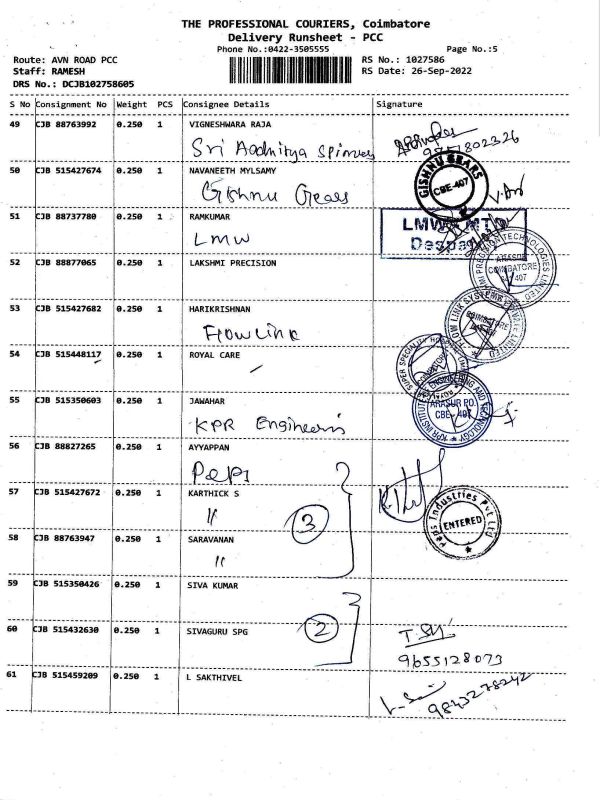 THE PROFESSIONAL COURIERS, Coimbatore
Delivery Runsheet - PCC
Phone No.:0422-3505555
Page No.:5
Route: AVN ROAD PCC
RS No.: 1027586
Staff: RAMESH
RS Date: 26-Sep-2022
DRS No.: DCJB102758605
S No Consignment No Weight PCS Consignee Details Signature
49 CJB 88763992 0.250 1 VIGNESHWARA RAJA
Sri Aadhitya Spinners
50 CJB 515427674 0.250 1 NAVANEETH MYLSAMY
Gishnu Gears
GISHNU GEARS
CBE-407
51 CJB 88737780 0.250 1 RAMKUMAR
LMW
LMW
52 CJB 88877065 0.250 1 LAKSHMI PRECISION
ARASUR
COIMBATORE
53 CJB 515427682 0.250 1 HARIKRISHNAN
Flowlink
COIMBATORE
54 CJB 515448117 0.250 1 ROYAL CARE
55 CJB 515350603 0.250 1 JAWAHAR
KPR Engineering
KPR INSTITUTE ENGINEERING AND TECHNOLOGY
ARASUR PO.
CBE- 407
56 CJB 88827265 0.250 1 AYYAPPAN
Peps
57 CJB 515427672 0.250 1 KARTHICK S
"
3
Peps Industries Pvt Ltd
ENTERED
58 CJB 88763947 0.250 1 SARAVANAN
"
59 CJB 515350426 0.250 1 SIVA KUMAR
60 CJB 515432630 0.250 1 SIVAGURU SPG
2
9655128073
61 CJB 515459209 0.250 1 L SAKTHIVEL
9843278242